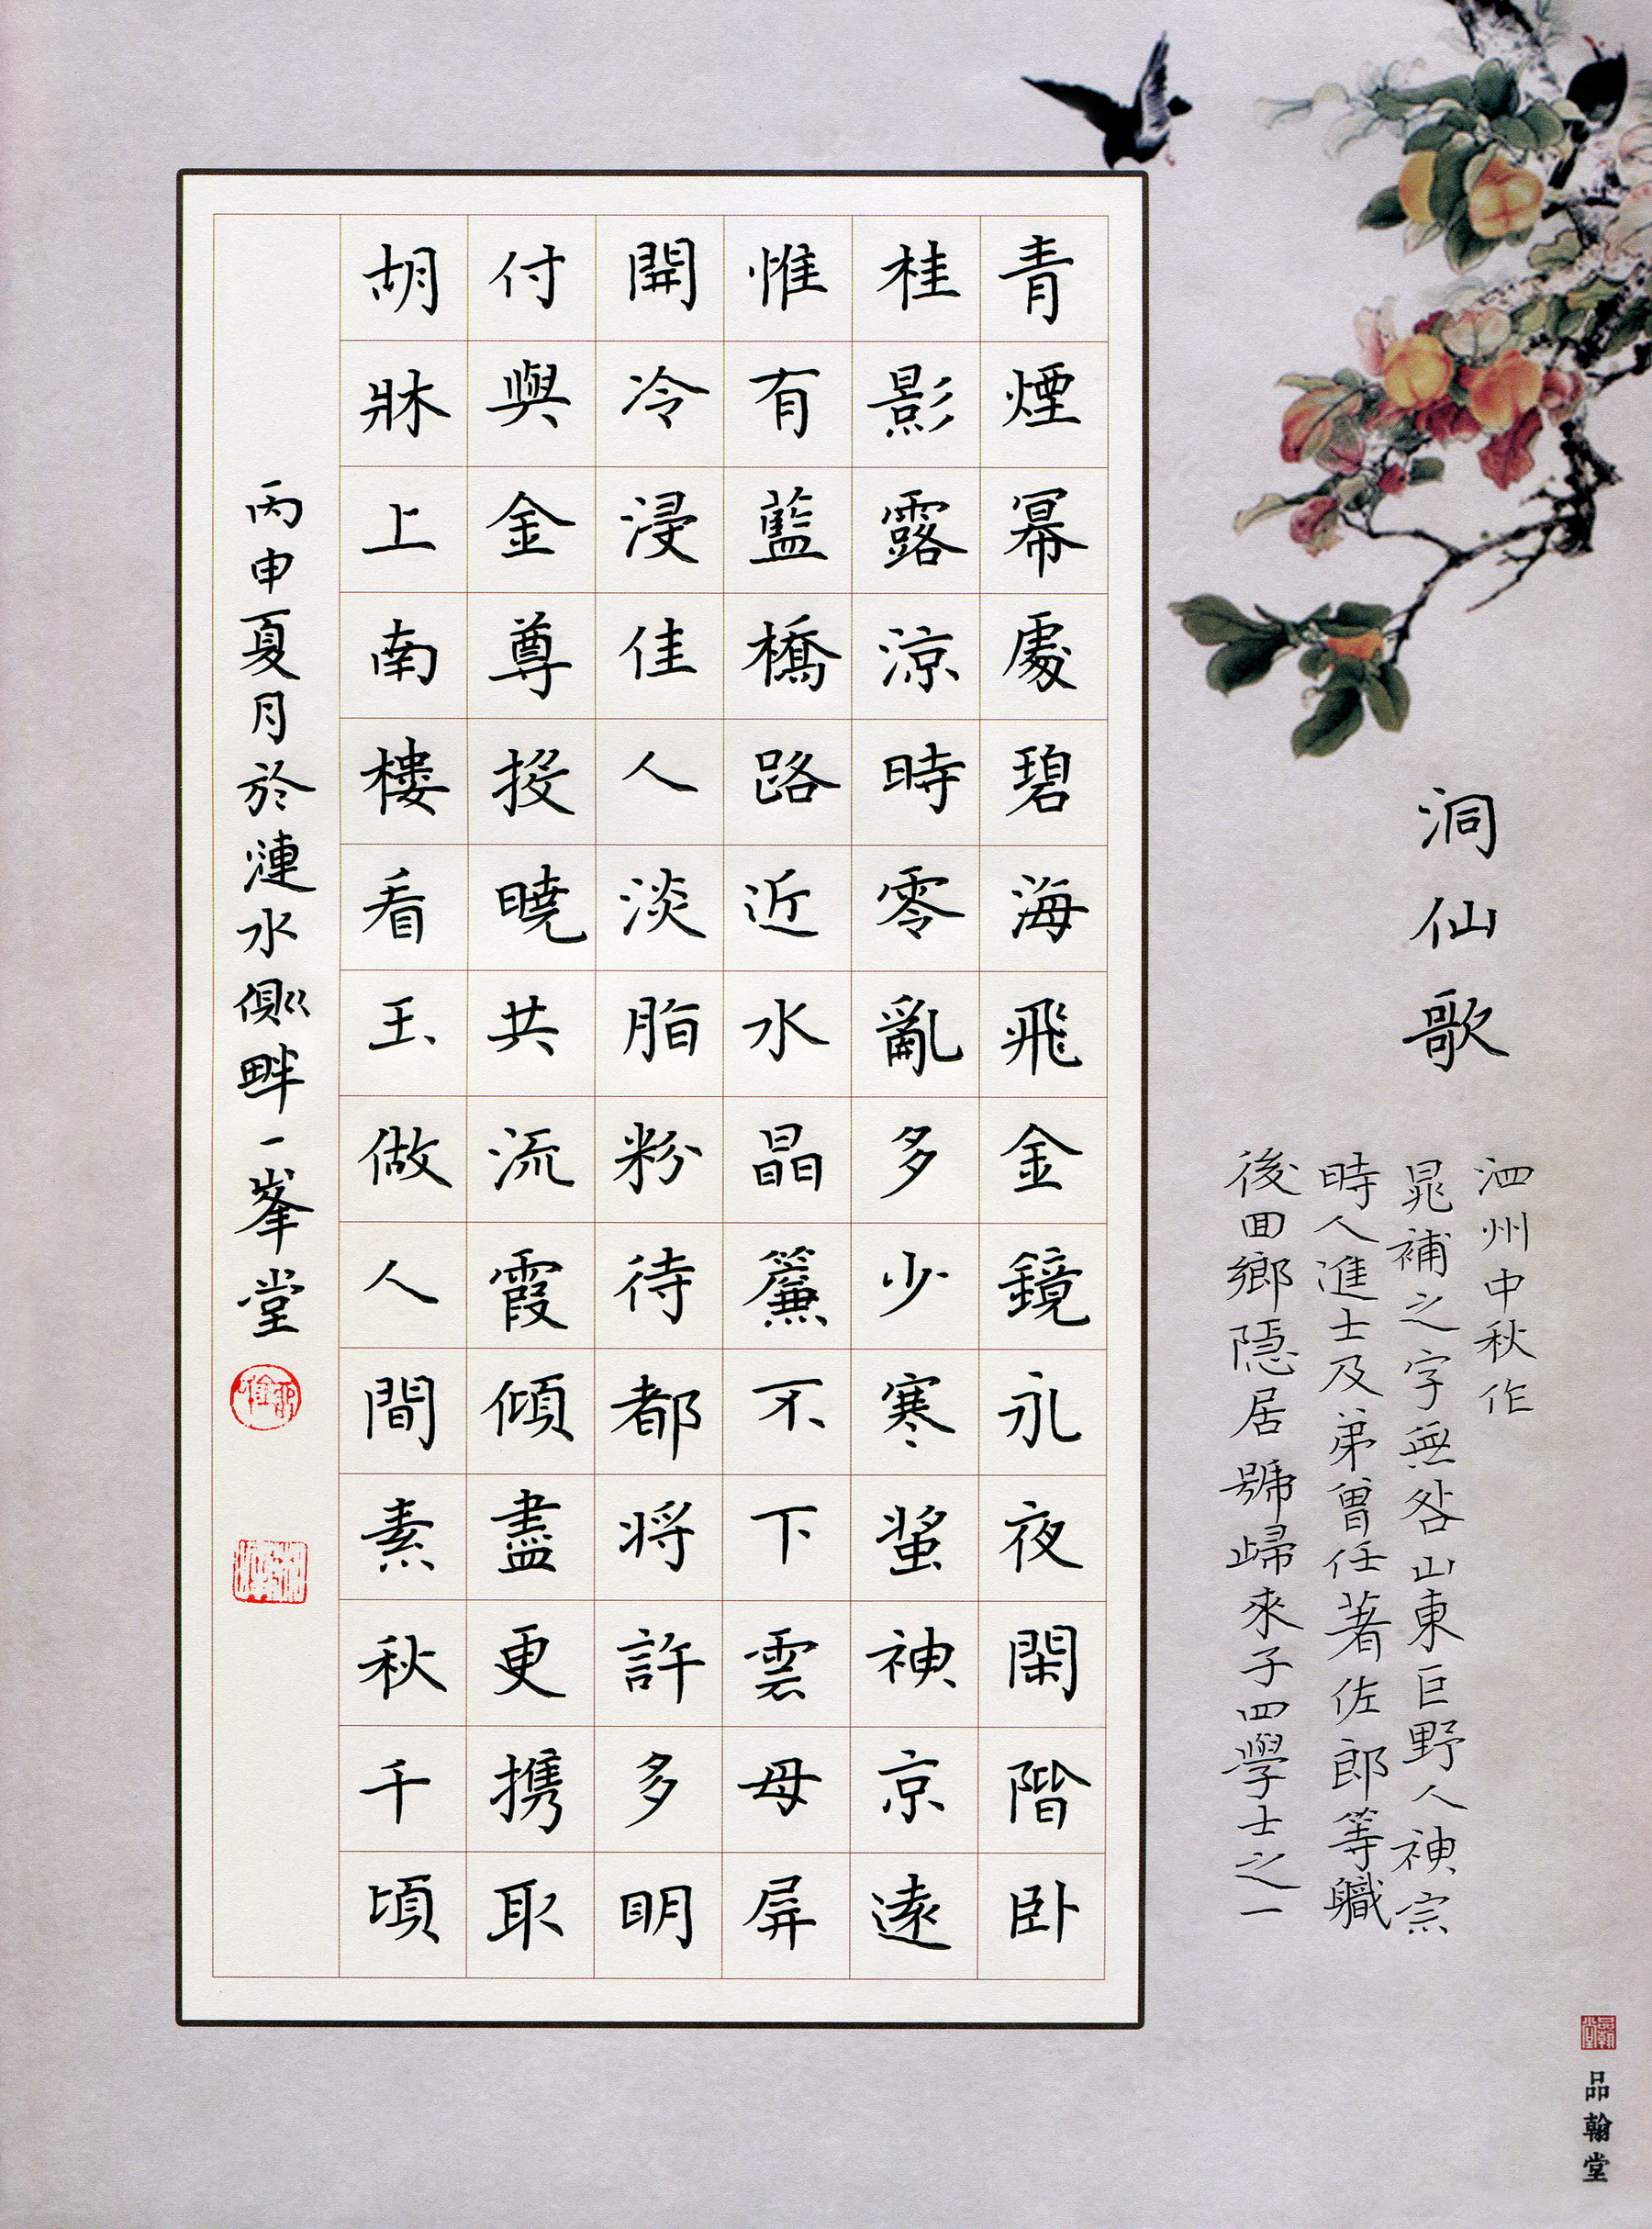 洞仙歌
泗州中秋作
晁補之字無咎山東巨野人神宗
時人進士及弟曾任著佐郎等職
後回鄉隱居號歸來子四學士之一
青煙幂處碧海飛金鏡永夜閑階卧
桂影露涼時零亂多少寒螀神京遠
惟有藍橋路近水晶簾不下雲母屏
開冷浸佳人淡脂粉待都將許多明
付與金尊投曉共流霞傾盡更携取
胡牀上南樓看玉做人間素秋千頃
丙申夏月於漣水側畔一峯堂
品翰堂
品翰堂